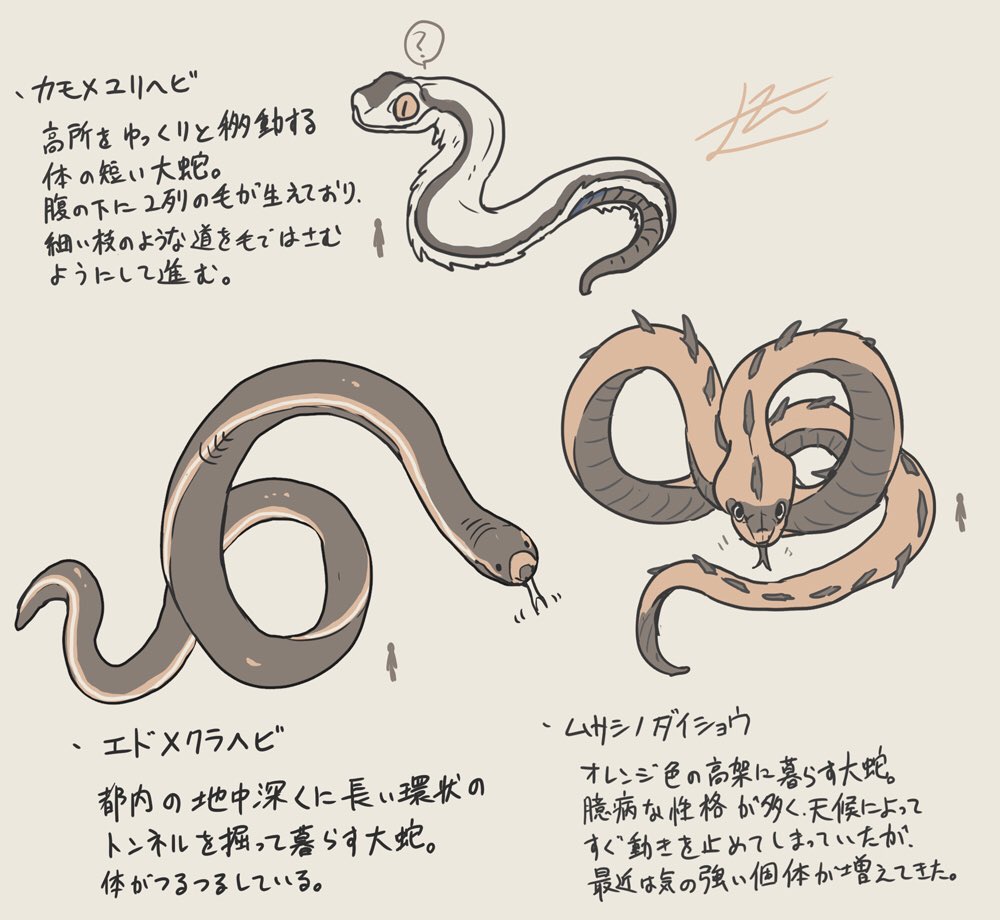 ?
、カモメユリヘビ
高所をゆっくりと移動する
体の短い大蛇。
腹の下に2列の毛が生えており、
細い枝のような道を毛ではさむ
ようにして進む。
、エドメクラヘビ
都内の地中深くに長い環状の
トンネルを掘って暮らす大蛇。
体がつるつるしている。
、ムサシノダイショウ
オレンジ色の高架に暮らす大蛇。
臆病な性格が多く、天候によって
すぐ動きを止めてしまっていたが、
最近は気の強い個体が増えてきた。